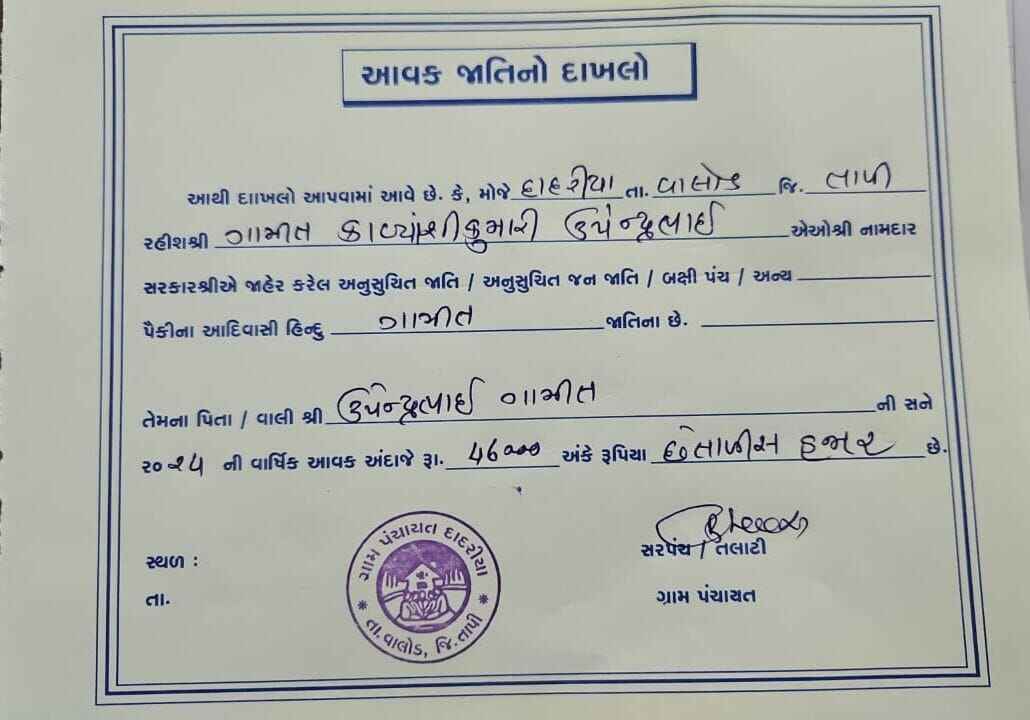 આવક જાતિનો દાખલો
આથી દાાખલો આપવામાં આવે છે. કે, મોજે દાદરીયા તા. વાલોડ જિ. તાપી
રહીશશ્રી ગામીત કાવ્યાંશીકુમારી ઉપેન્દ્રભાઈ એઓશ્રી નામદાર
સરકારશ્રીએ જાહેર કરેલ અનુસુચિત જાતિ / અનુસુચિત જન જાતિ / બક્ષી પંચ / અન્ય
પૈકીના આદિવાસી હિન્દુ ગામીત જાતિના છે.
તેમના પિતા / વાલી શ્રી ઉપેન્દ્રભાઈ ગામીત ની સને
૨૦૨૫ ની વાર્ષિક આવક અંદાજે રૂા. 46000 અંકે રૂપિયા છેતાળીસ હજાર છે.
સરપંચ / તલાટી
સ્થળ :
તા.
ગ્રામ પંચાયત
ગ્રામ પંચાયત દાદરીયા
તા. વાલોડ, જિ. તાપી